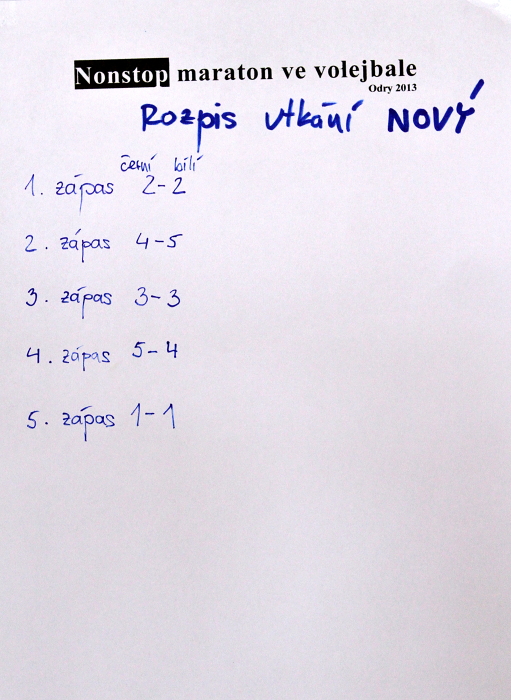 Nonstop maraton ve volejbale
Odry 2013
Rozpis utkání NOVÝ
černí bílí
1. zápas 2-2
2. zápas 4-5
3. zápas 3-3
4. zápas 5-4
5. zápas 1-1